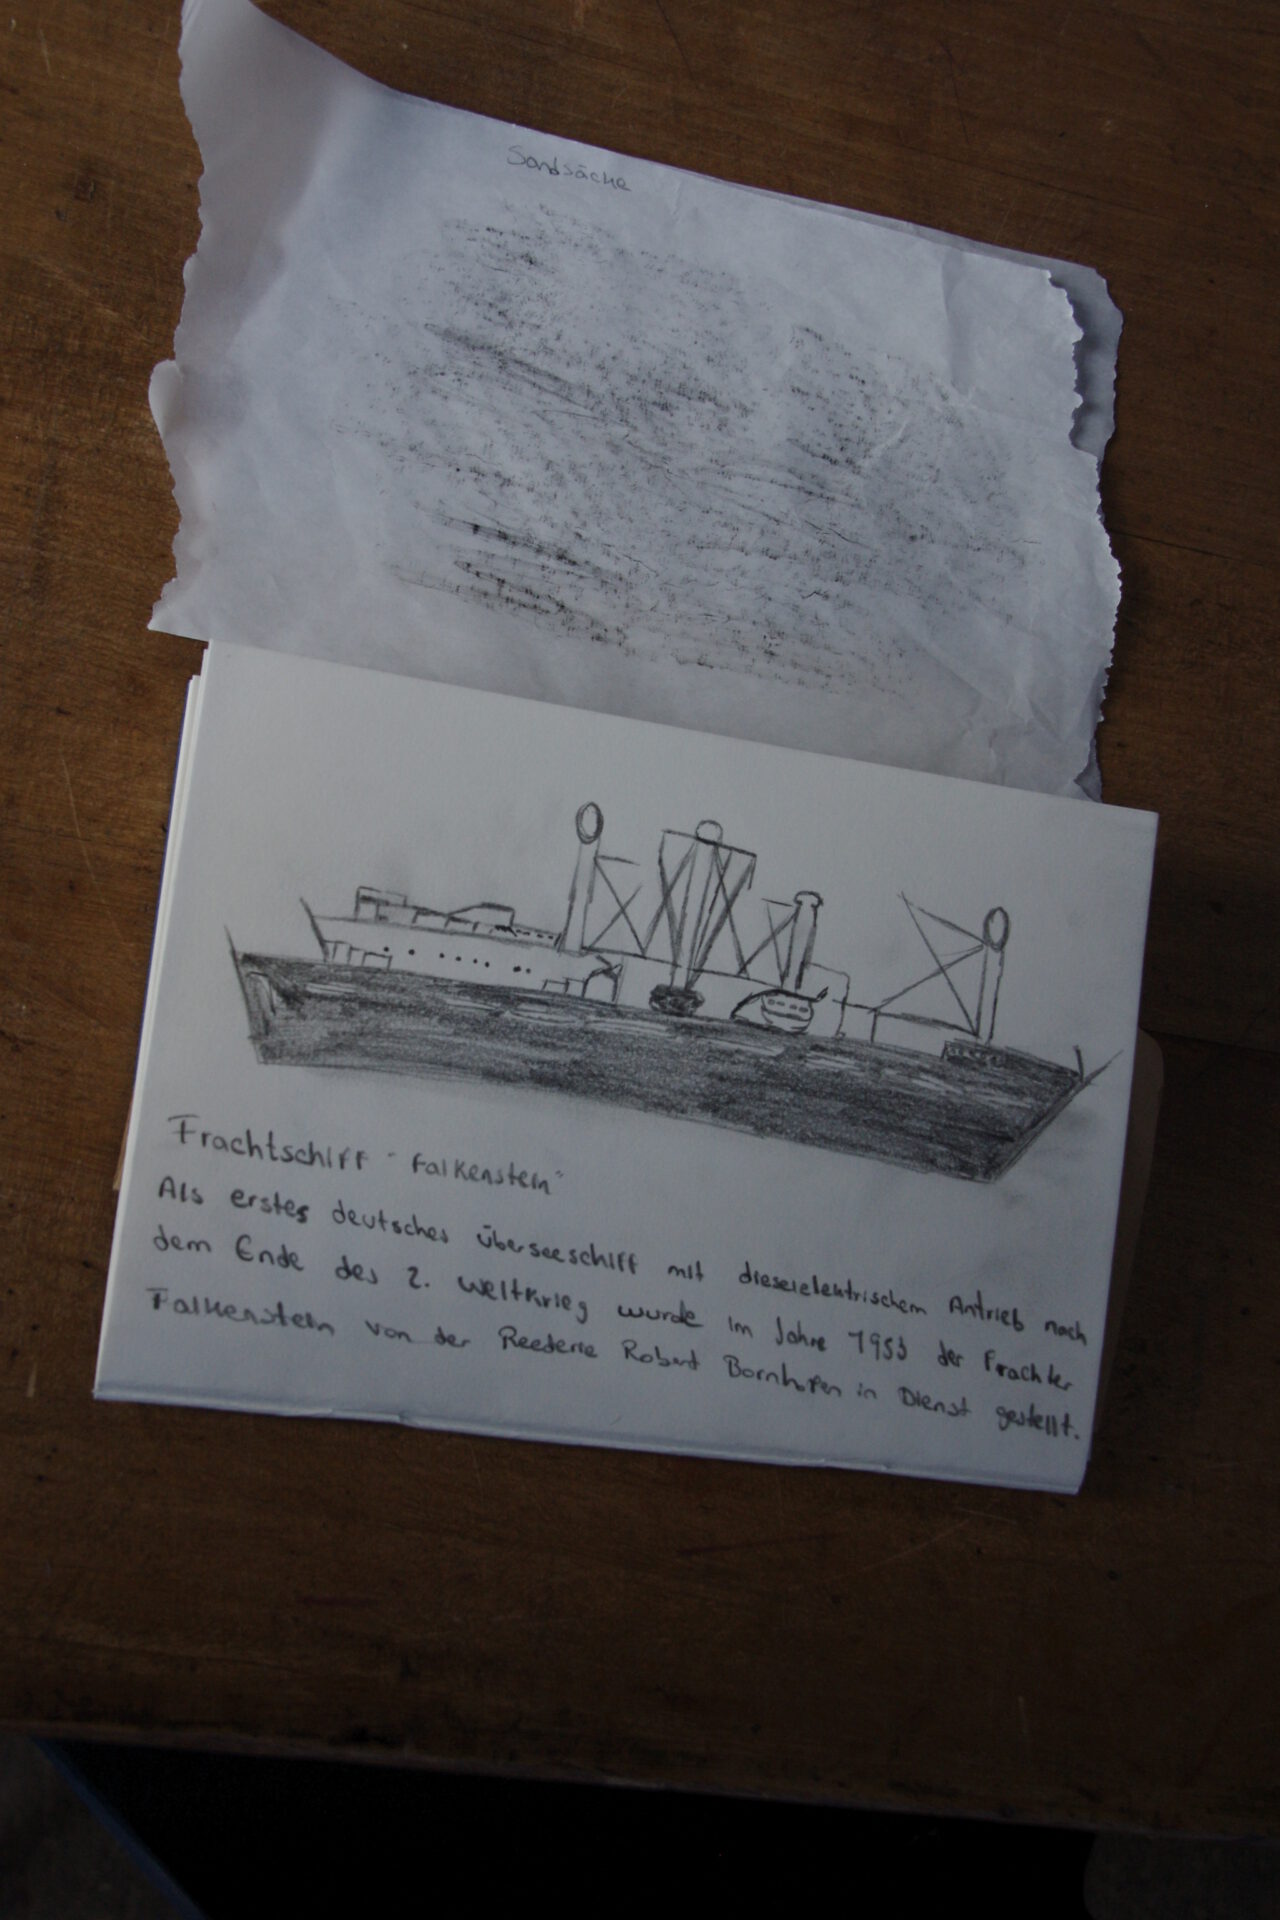 Sandsäcke
Frachtschiff "Falkenstein"
Als erstes deutsches Überseeschiff mit dieselelektrischem Antrieb nach
dem Ende des 2. Weltkrieg wurde im Jahre 1953 der Frachter
Falkenstein von der Reederie Robert Bornhofen in Dienst gestellt.